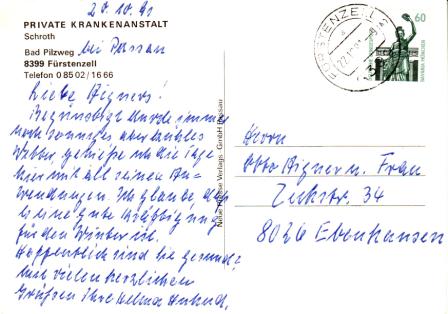 20.10.91
PRIVATE KRANKENANSTALT
Schroth
Bad Pilzweg bei Passau
8399 Fürstenzell
Telefon 0 85 02 / 16 66
Liebe Aigners!
Begünstigt durch immer
noch sonniges aber kühles
Wetter, genieße ich die Tage
hier mit all seinen An-
wendungen. Ich glaube, daß
es eine gute Kräftigung
für den Winter ist.
Hoffentlich sind Sie gesund?
Mit vielen herzlichen
Grüßen Ihre Helma
Neue Presse Verlags-GmbH Passau
FÜRSTENZELL
60
DEUTSCHE BUNDESPOST
BAVARIA MÜNCHEN
Herrn
Otto Aigner u. Frau
34
8026 Ebenhausen